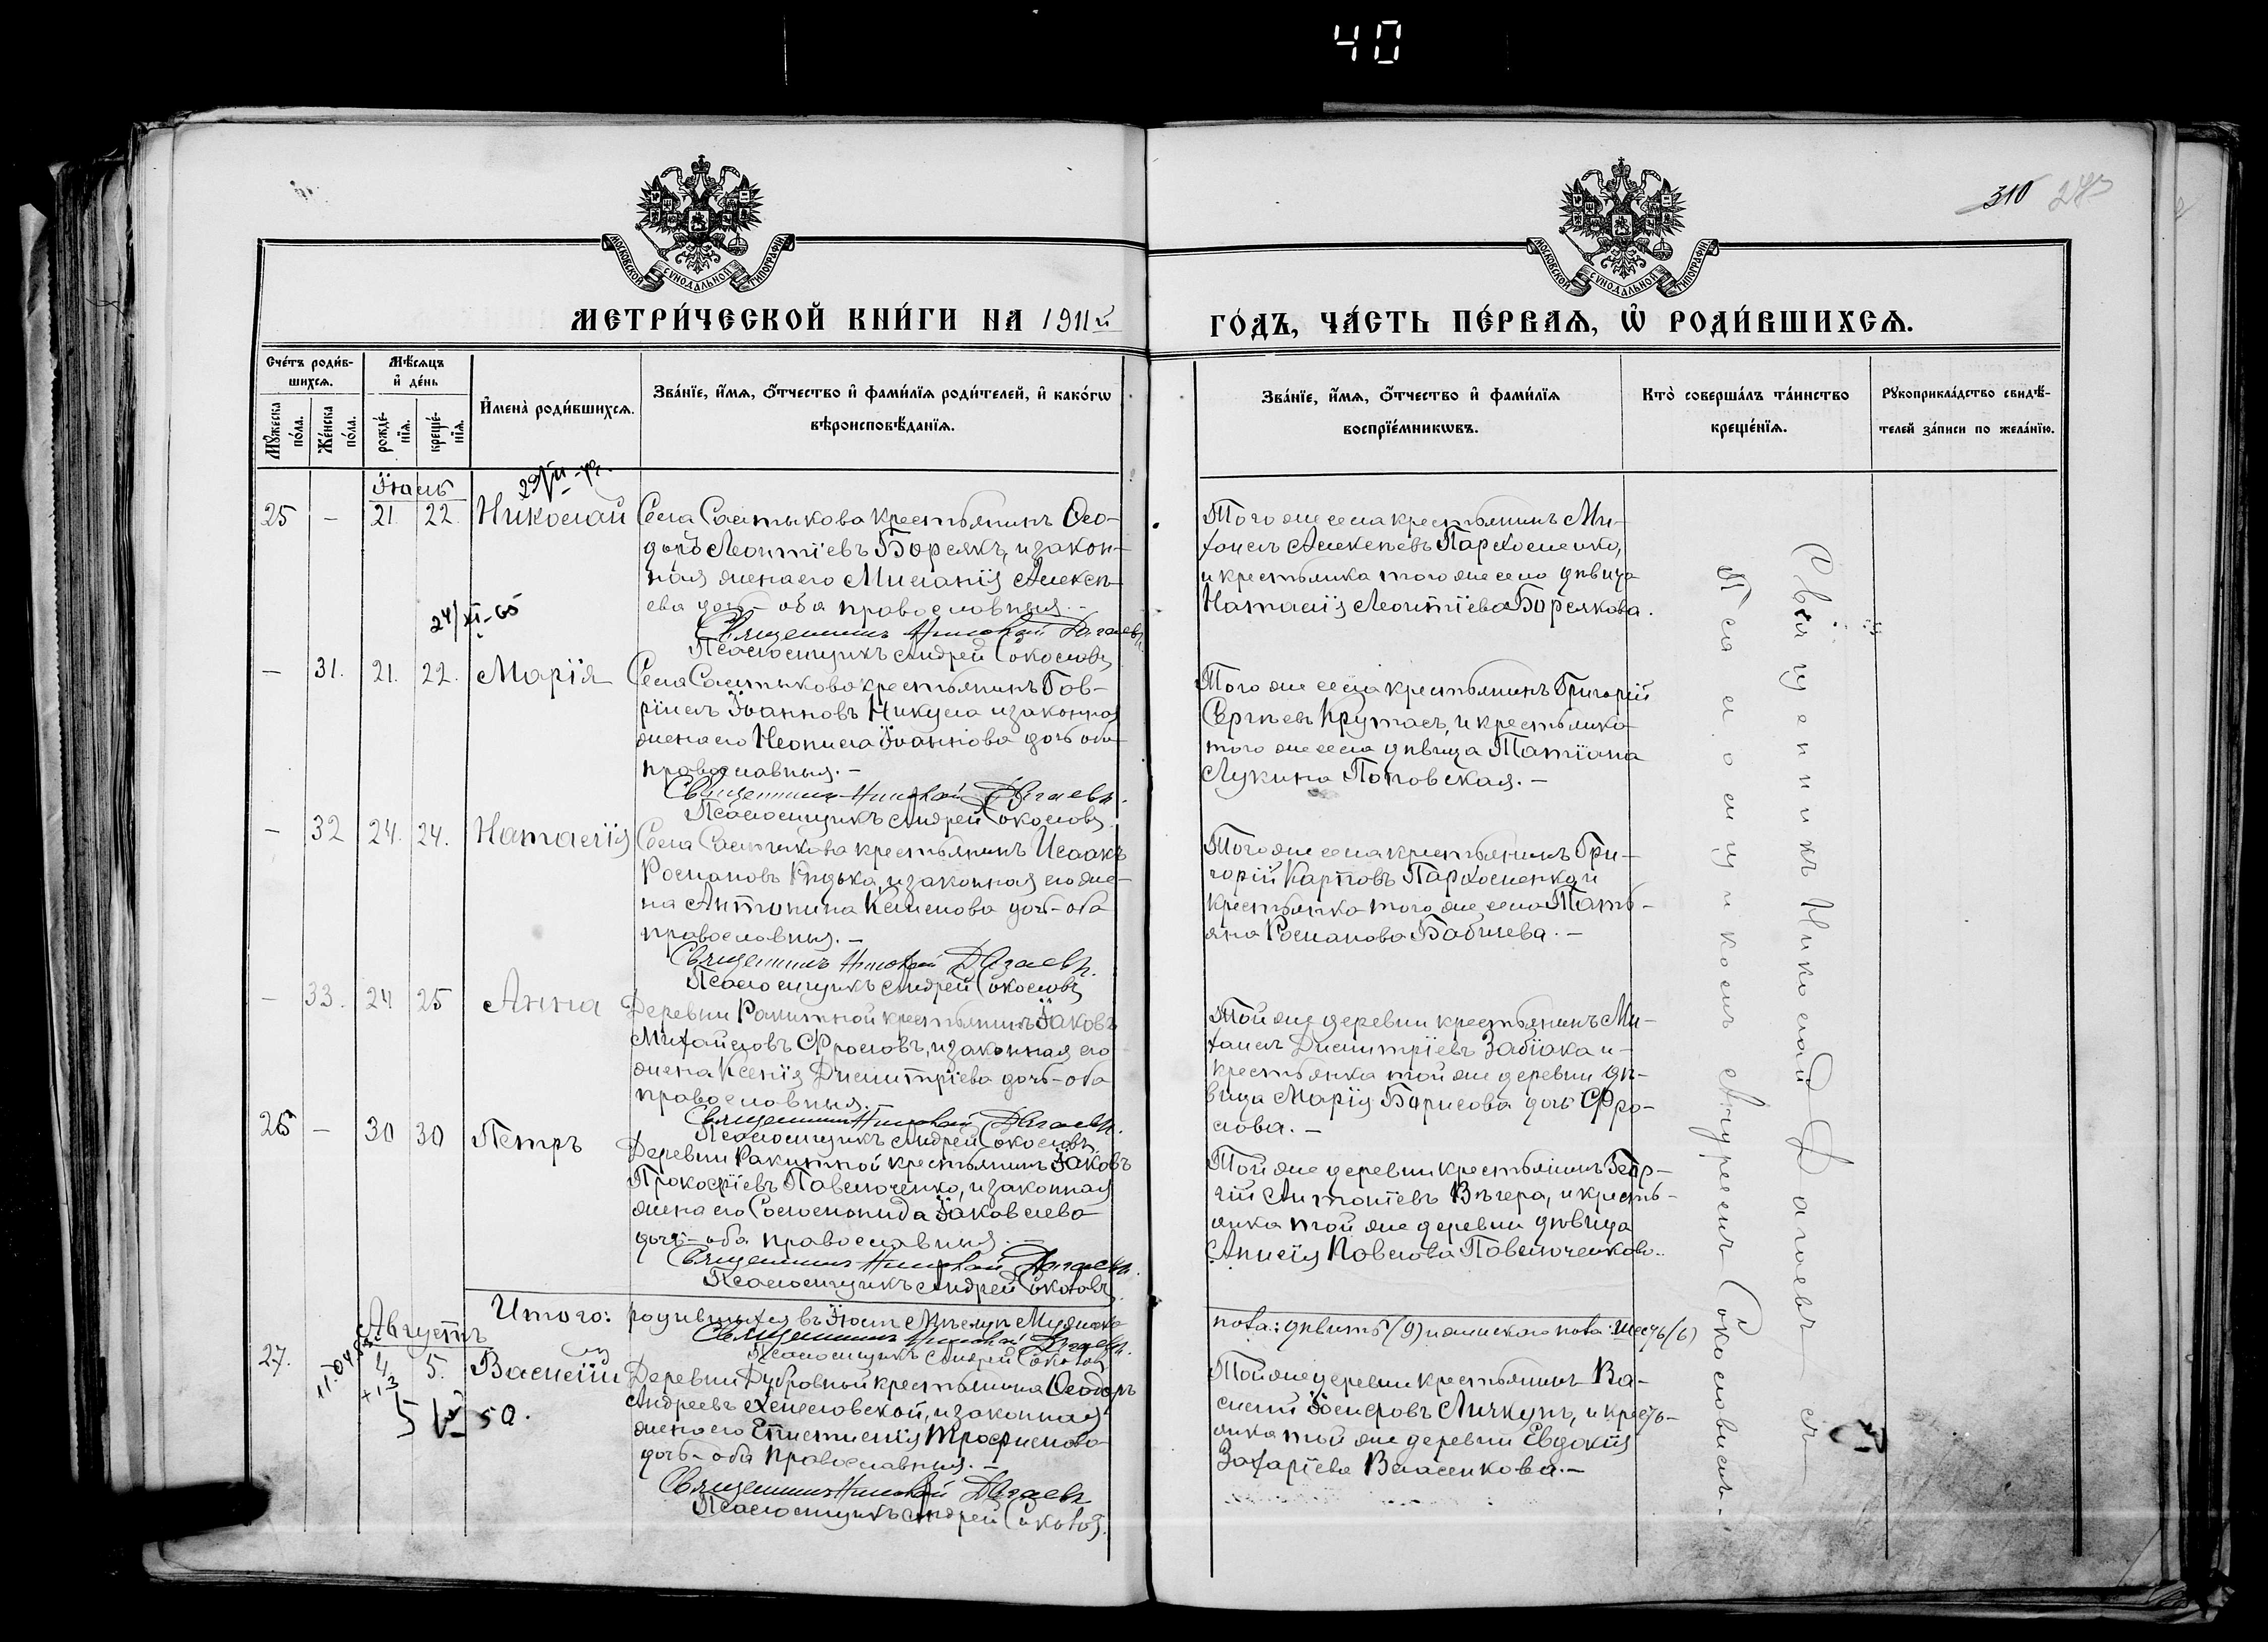 40
310
МОСКОВСКОЙ СУНОДАЛЬНОЙ ТИПОГРАФІИ
МОСКОВСКОЙ СУНОДАЛЬНОЙ ТИПОГРАФІИ
МЕТРИ́ЧЕСКОЙ КНИ́ГИ НА 1911й
ГО́ДЪ, ЧА́СТЬ ПЕ́РВАЯ, Ѡ РОДИ́ВШИХСЯ.
Сче́тъ роди́в-
шихся.
Мꙋ́жеска по́ла.
Же́нска по́ла.
Мѣ́сяцъ и де́нь
рожде́-
нїя.
креще́-
нїя.
Имена̀ роди́вшихся.
Зва́нїе, и́мя, ѻ́тчество и фами́лїя роди́телей, и како́гѡ
вѣроисповѣ́данїя.
Зва́нїе, и́мя, ѻ́тчество и фами́лїя
воспрїе́мникѡвъ.
Кто̀ соверша́лъ та́инство
креще́нїя.
Рꙋкоприкла́дство свидѣ́-
телей за́писи по жела́нїю.
Іюль
25 – 21. 22. Николай
Села Салтыкова крестьянинъ Ѳео-
доръ Леонтіевъ Борсякъ, и закон-
ная жена его Меланія Алексѣ-
ева дочь – оба православныя. –
Священникъ Николай Дагаевъ.
Псаломщикъ Андрей Соколовъ
Того же села крестьянинъ Ми-
хаилъ Алексѣевъ Пархоменко,
и крестьянка того же села дѣвица
Наталія Леонтіева Борсякова.
24/XI-65
– 31. 21. 22. Марія
Села Салтыкова крестьянинъ Гав-
ріилъ Іоанновъ Никула и законная
жена его Неонила Іоаннова дочь оба
православныя. –
Священникъ Николай Дагаевъ.
Псаломщикъ Андрей Соколовъ.
Того же села крестьянинъ Григорій
Сергѣевъ Крутась, и крестьянка
того же села дѣвица Татіана
Лукина Поповская. –
– 32 24. 24. Наталія
Села Салтыкова крестьянинъ Исаакъ
Романовъ Кидька, и законная его же-
на Антонина дочь – оба
православныя. –
Священникъ Николай Дагаевъ.
Псаломщикъ Андрей Соколовъ
Того же села крестьянинъ Гри-
горій Карповъ Пархоменко и
крестьянка того же села Тать-
яна Романова Бабичева. –
– 33. 24 25 Анна
Деревни Ракитной крестьянинъ Іаковъ
Михайловъ Фроловъ, и законная его
жена Ксенія Димитріева дочь – оба
православныя. –
Священникъ Николай Дагаевъ.
Псаломщикъ Андрей Соколовъ
Той же деревни крестьянинъ Ми-
хаилъ Димитріевъ Забіака и –
крестьянка той же деревни дѣ-
вица Марія Борисова дочь Фро-
лова. –
26 – 30 30 Петръ
Деревни Ракитной крестьянинъ Іаковъ
Прокофіевъ Павлюченко, и законная
жена его Соломонида Іаковлева
дочь – оба православныя. –
Священникъ Николай Дагаевъ.
Псаломщикъ Андрей Соколовъ
Той же деревни крестьянинъ Геор-
гій Антоніевъ Вѣгера, и кресть-
янка той же деревни дѣвица
Анисія Павлова Павлюченкова.
Итого: родившихся въ Іюлѣ мѣсяцѣ мужеска
пола: девять (9) и женскаго пола: шесть (6)
Священникъ Николай Дагаевъ.
Псаломщикъ Андрей Соколовъ
Августъ
27. 4. 5. Василій
Деревни Дубровный крестьянина Ѳеодоръ
Андреевъ Хмеловской, и законная
жена его Епистимія Трофимова
дочь – оба православныя. –
Священникъ Николай Дагаевъ
Псаломщикъ Андрей Соколовъ.
Той же деревни крестьянинъ Ва-
силій Іосифовъ Личкунъ, и кресть-
янка той же деревни Евдокія
Захаріева Власенкова. –
Священникъ Николай Дагаевъ съ
Псаломщикомъ Андреемъ Соколовымъ.